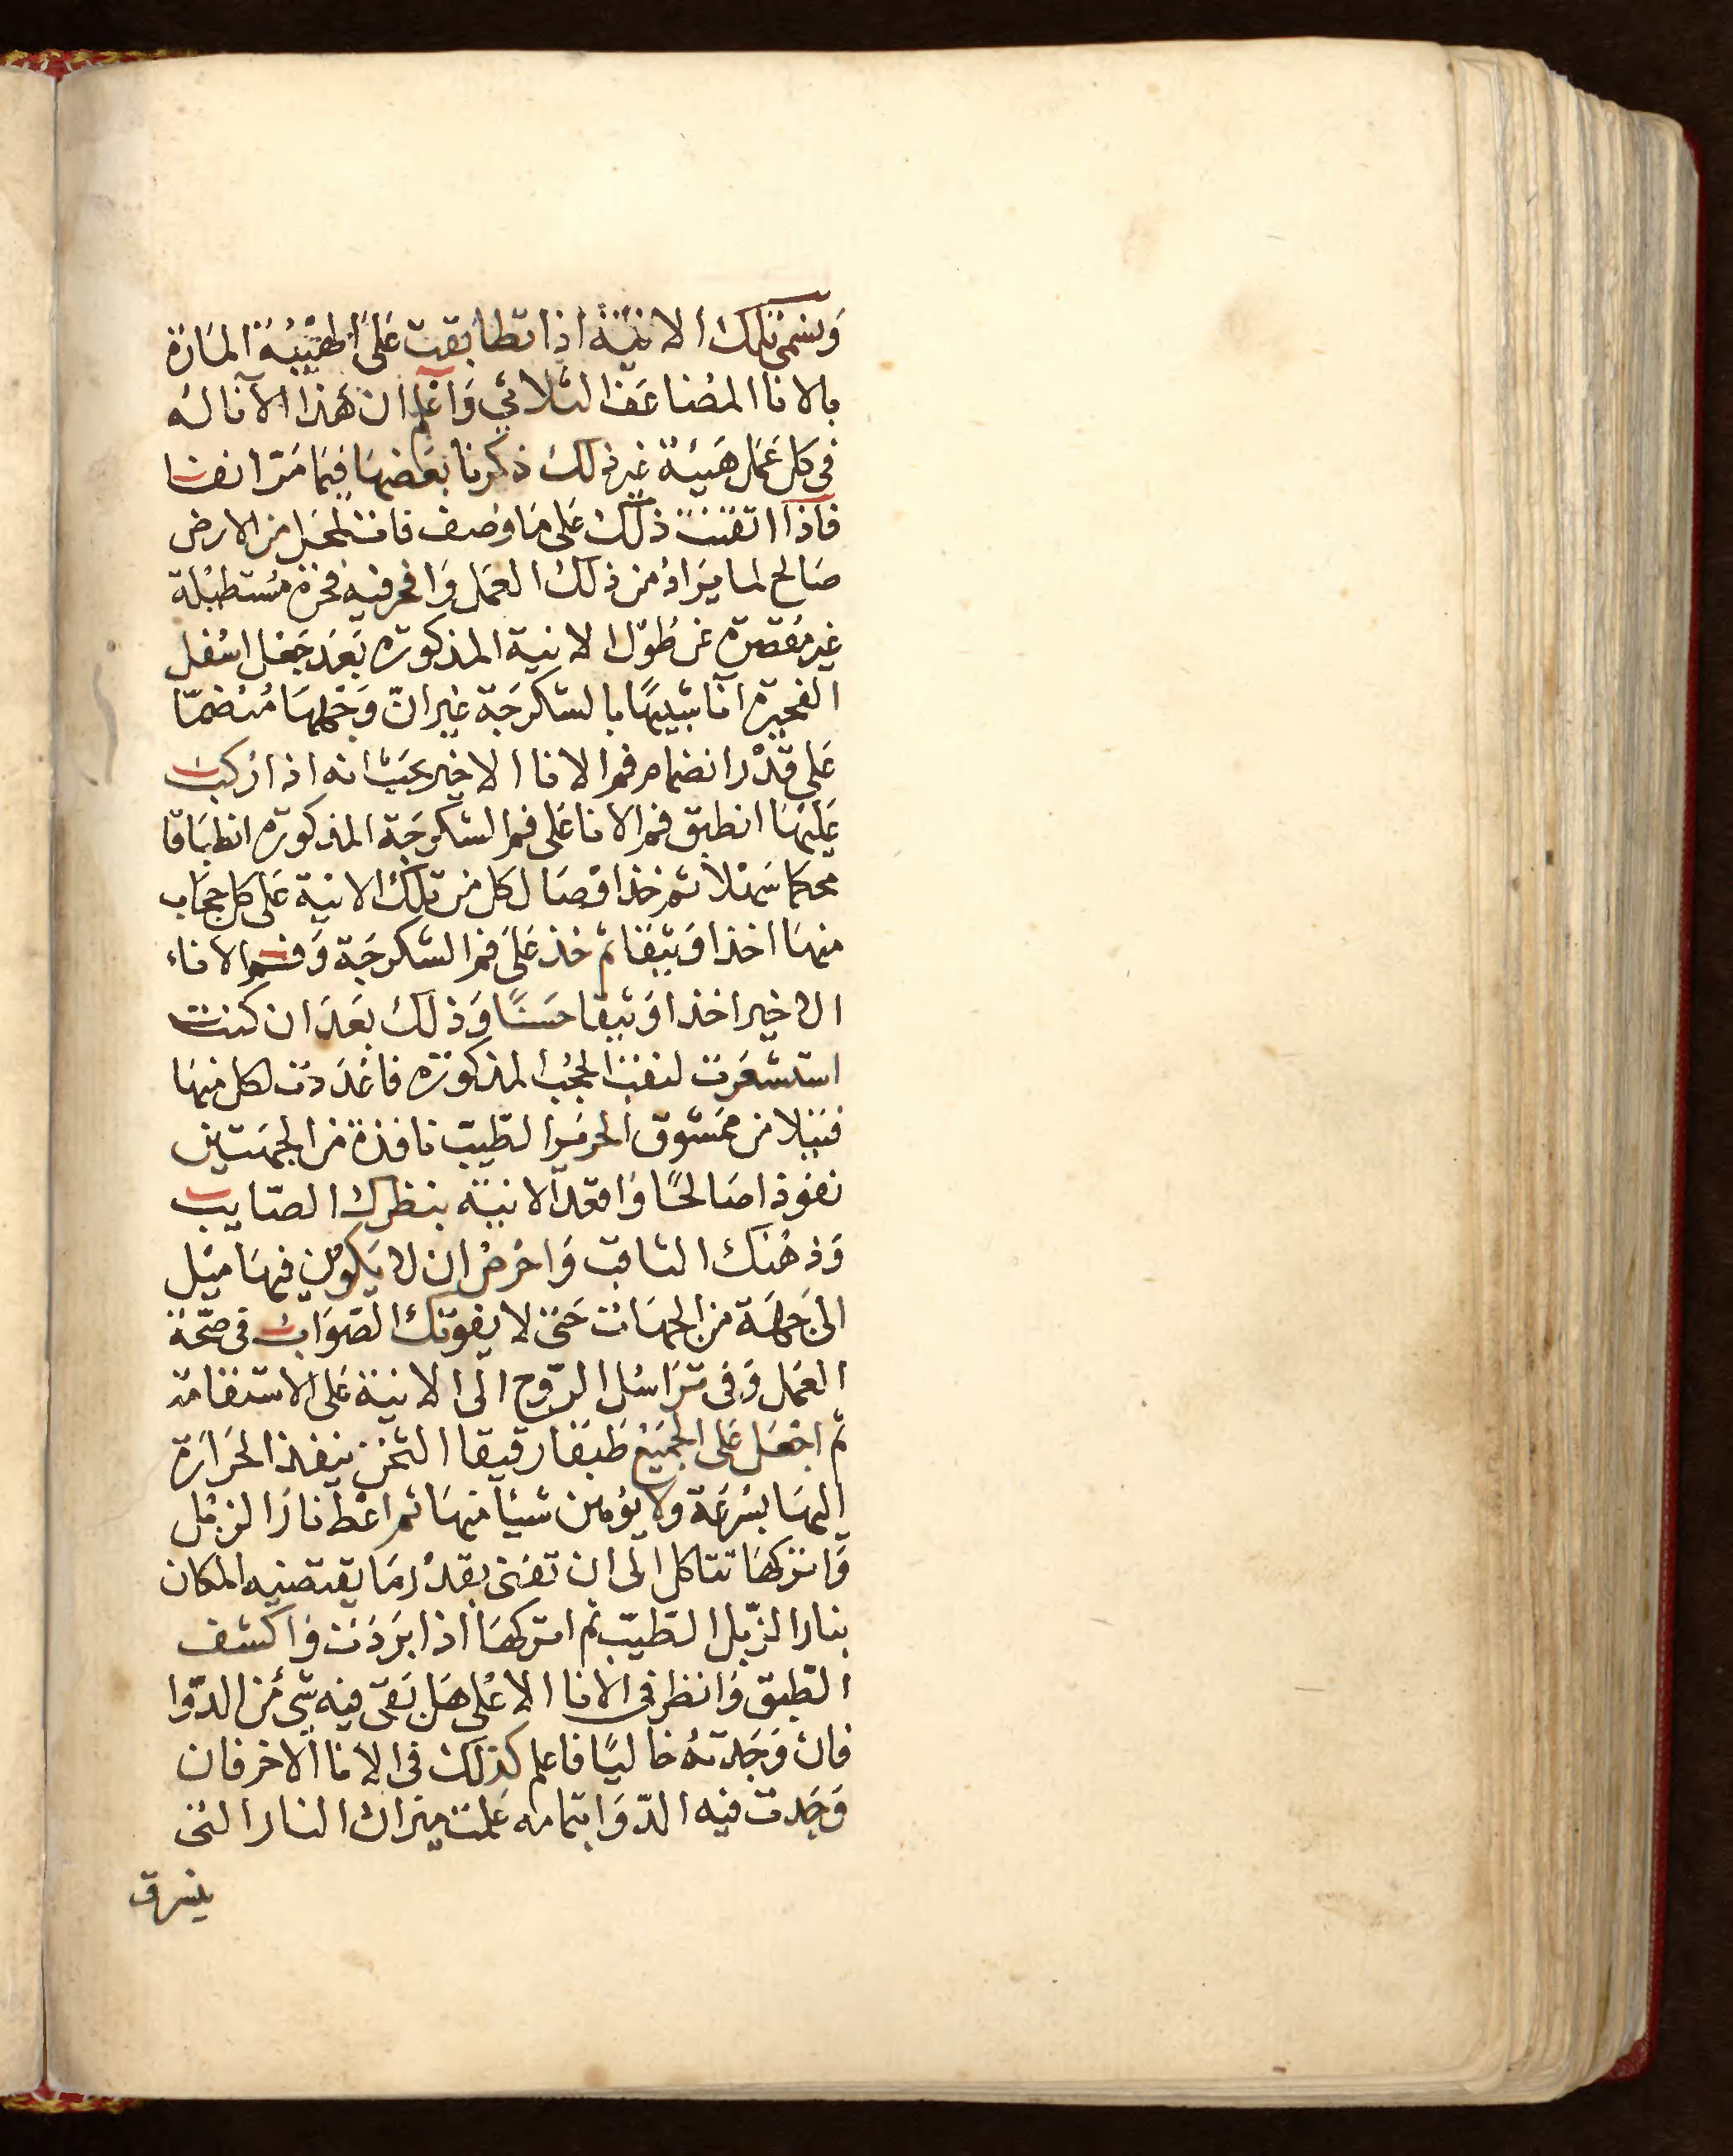 وتسمى تلك الانية اذا تطابقت على الهيئة المارة
بالانا المضاعف الثلاثي واعلم ان هذا الآنا له
في كل عمل هيئة غير ذلك ذكرنا بعضها فيما مر انفا
فاذا اتقنت ذلك على ما وصف فات لمحل من الارض
صالح لما يراد من ذلك العمل وافحر فيه فحرة مستطيلة
غير مقصرة عن طول الانية المذكورة بعد جعل اسفل
الفحيرة انا شبيها بالسكرجة غير ان وجهها منضما
على قدر انضمام فم الانا الاخير بحيث انه اذا ركبت
عليها انطبق فم الانا على فم السكرجة المذكورة انطباقا
محكما سهلا ثم خذ اوصال كل من تلك الانية على كل حجاب
منها اخذا وثيقا ثم خذ على فم السكرجة وفم الاناء
الاخير اخذا وثيقا حسنا وذلك بعد ان كنت
استشعرت لنقب الحجب المذكورة فاعددت لكل منها
فتيلا من ممشوق الحرير الطيب نافذة من الجهتين
نفوذا صالحا وافقد الانية بنظرك الصايب
وذهنك الثاقب واحرص ان لا يكون فيها ميل
الى جهة من الجهات حتى لا يفوتك الصواب في صحة
العمل وفي تراسل الروح الى الانية على الاستقامة
ثم اجعل على الجميع طبقا رقيقا الثخن ينفذ الحرارة
اليها بسرعة ولا يوهن شيئا منها ثم اعط نار الزبل
واتركها تتاكل الى ان تفنى بقدر ما يقتضيه المكان
بنار الزبل الطيب ثم اتركها اذا بردت واكشف
الطبق وانظر في الانا الاعلى هل بقى فيه شيء من الدوا
فان وجدته خاليا فاعلم كذلك في الانا الاخر فان
وجدت فيه الدوا بتمامه علمت ميزان النار التي